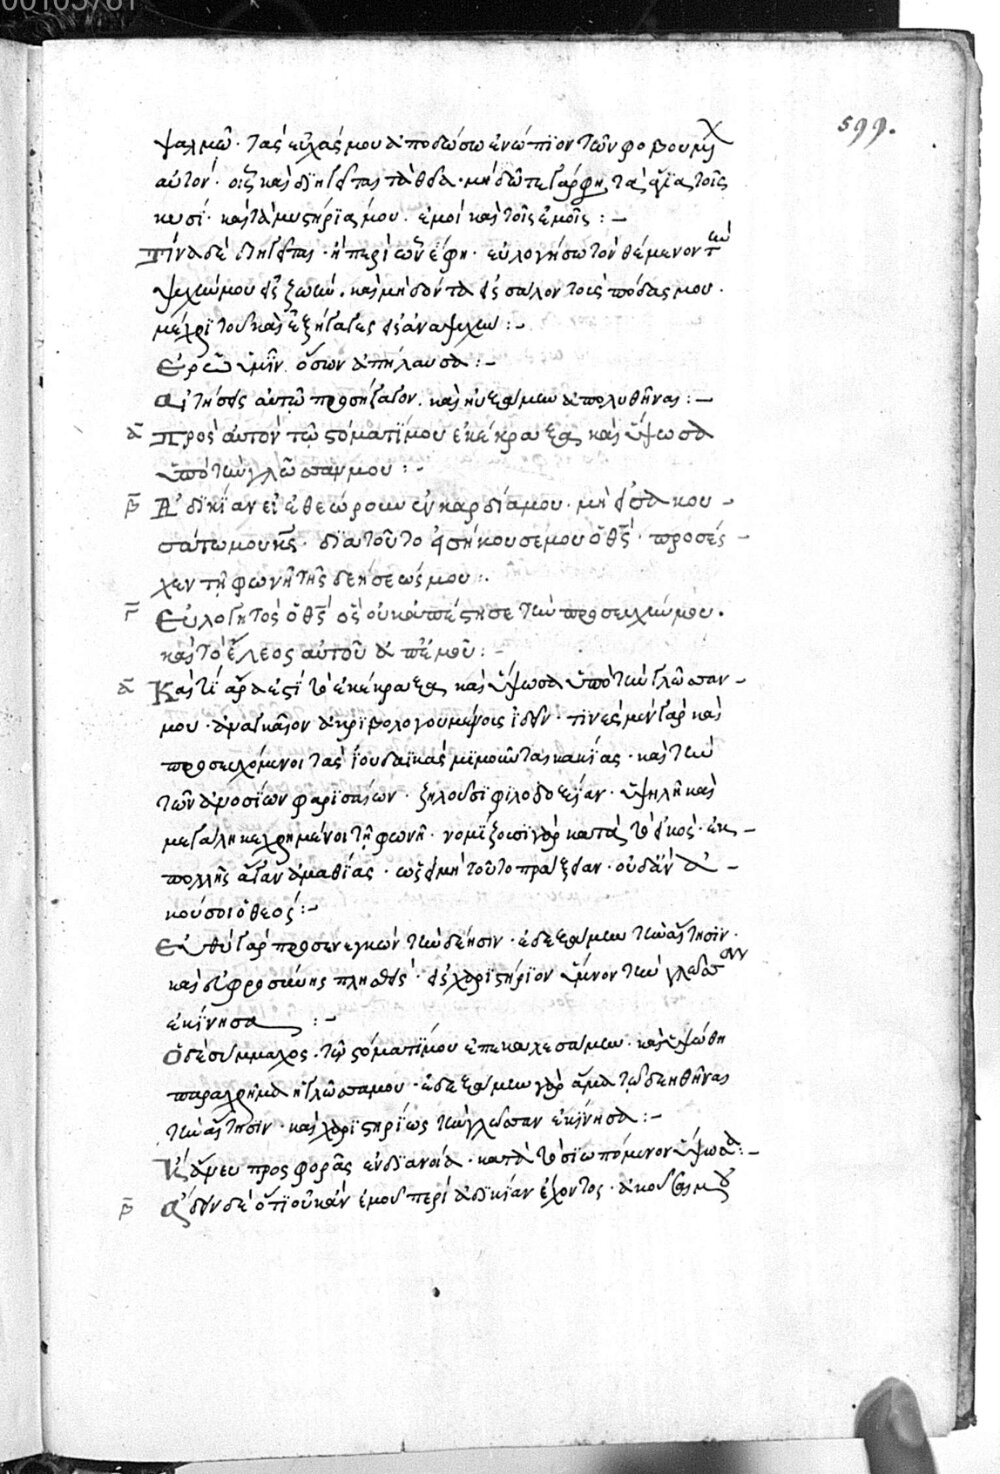 599.
ψαλμῶ· τὰς εὐχάς μου ἀποδώσω ἐνώπϊον τῶν φοβουμένων
αὐτόν· καὶ διηγεῖται τὰ θεῖα· μὴ δῶτε γάρ φησι τὰ ἅγια τοῖς
κυσί· καὶ τὰ μυστήρϊά μου. ἐμοὶ καὶ τοῖς ἐμοῖς :-
Τίνα δὲ διηγεῖται· ἢ περὶ ὧν ἔφη· εὐλογήσω τὸν θέμενον τὴν
ψυχήν μου εἰς ζωήν. καὶ μὴ δόντα εἰς σάλον τοὺς πόδας μου.
μέχρϊ τοῦ καὶ ἐξήγαγες εἰς ἀναψυχήν :-
Ἐρῶ ὑμῖν ὅσων ἀπήλαυσα :-
αἰτήσεις αὐτῶ προσήγαγον. καὶ ηὐξάμην ἀπολυθῆναι :-
α Πρὸς αὐτὸν τῶ στόματϊ μου ἐκέκραξα καὶ ὕψωσα
ὑπὸ τὴν γλῶσσαν μου :-
β Ἀδϊκίαν εἰ ἐθεώρουν ἐν καρδία μου· μὴ εἰσακου-
σάτω μου κς· δϊὰ τοῦτο εἰσήκουσέ μου ὁ θς· προσές-
χεν τῇ φωνῇ τῆς δεήσεώς μου :.
γ Εὐλογητὸς ὁ θς ὃς οὐκ ἀπέστησε τὴν προσευχήν μου.
καὶ τὸ ἔλεος αὐτοῦ ἀπ' ἐμοῦ :-
α Καὶ τί ἄρα ἐστὶ τὸ ἐκέκραξα καὶ ὕψωσα ὑπὸ τὴν γλῶσσαν-
μου· ἀναγκαῖον ἀκρϊβολογουμένοις ἰδεῖν· τϊνὲς μὲν γὰρ καὶ
προσευχόμενοι τὰς ἰουδαϊκὰς μϊμοῦνται κακίας· καὶ τὴν
τῶν ἀνοσίων φαρϊσαίων· ζηλοῦσϊ φϊλοδοξίαν· ὑψηλῇ καὶ
μεγάλη κεχρημένοι τῇ φωνῇ· νομίζουσϊ γὰρ κατὰ τὸ εἰκὸς· ἐκ-
πολλῆς ἄγαν ἀμαθίας· ὡς εἰ μὴ τοῦτο πράξειαν· οὐδ' ἂν ἀ-
κούσοι ὁ θεός :-
Εὐθὺ γὰρ προσενεγκὼν τὴν δέησιν· ἐδεξάμην τὴν αἴτησϊν·
καὶ εὐφροσύνης πλησθεὶς· εἰς χαρϊστήρϊον ὕμνον τὴν γλῶσσαν
ἐκίνησα :-
Ὁ δὲ σύμμαχος· τῶ στόματί μου ἐπεκαλεσάμην· καὶ ὑψώθη
παραχρῆμα ἡ γλῶσσα μου· ἐδεξάμην γὰρ ἅμα τῶ δεηθῆναι
τὴν αἴτησϊν· καὶ χαρϊστηρίως τὴν γλῶσσαν ἐκίνησα :-
Κἂν ἄνευ προσφορᾶς ἐν διανοία· κατὰ τὸ σϊωπόμενον ὕψωσα :-
β ἀΐδειν δὲ ὅτϊ οὐκ ἂν ἐμοῦ περὶ ἀδϊκίαν ἔχοντος· ἀκοῦσαί μου